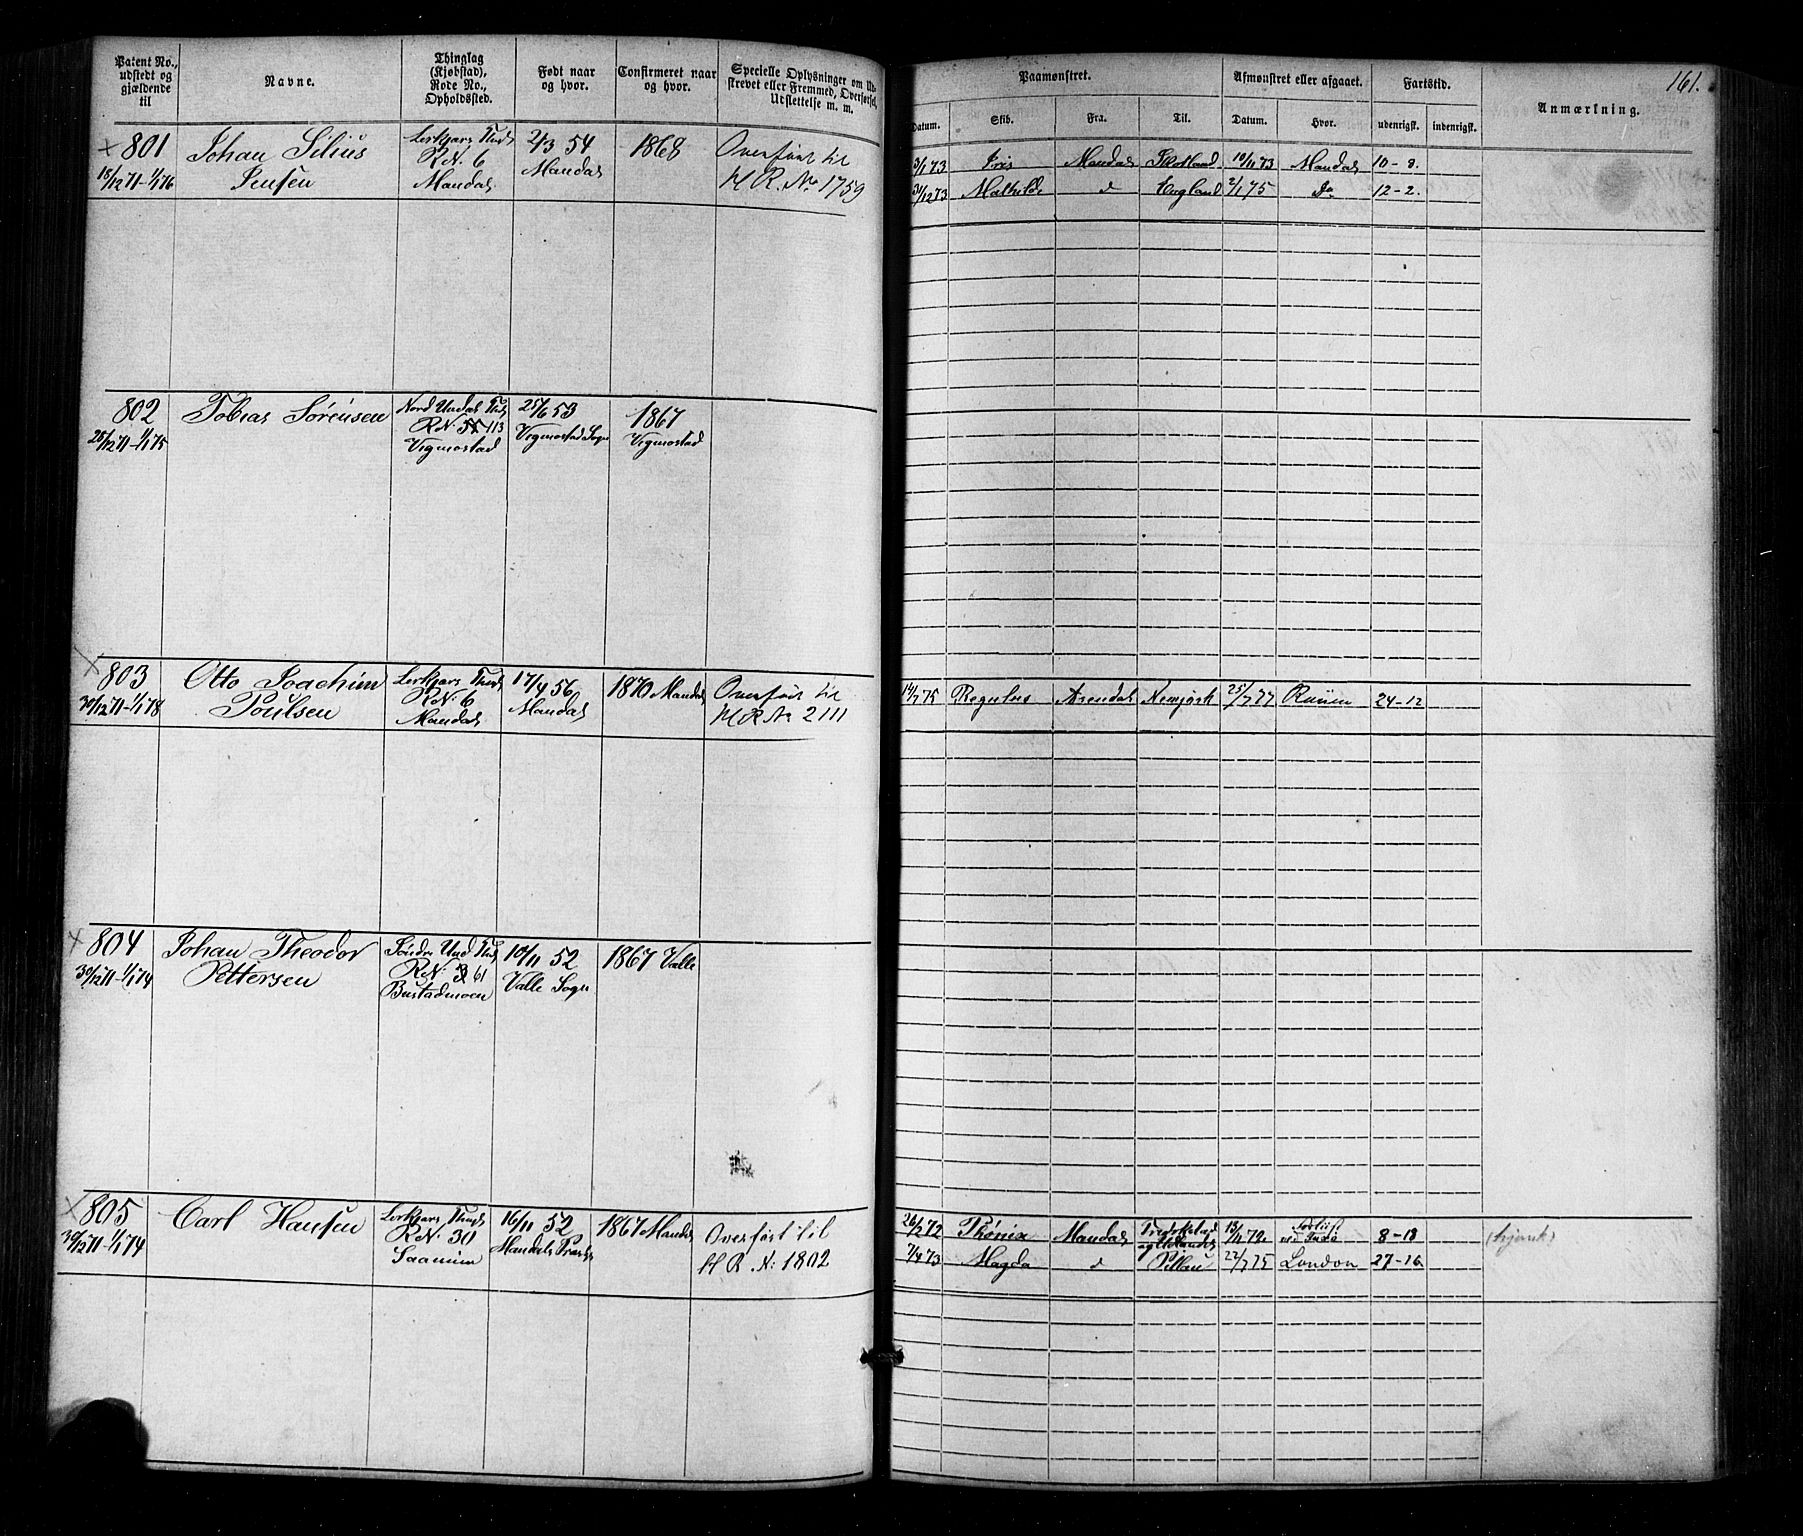 Patent No., udstedt og gjældende til
Navne.
Thinglag (Kjøbstad), Rode No., Opholdssted.
Født naar og hvor.
Confirmeret naar og hvor.
Specielle Oplysninger om Ud-
strevet eller Fremmed, Overførsel,
Udslettelse m. m.
Paamønstret.
Afmønstret eller afgaaet.
Fartstid.
Anmærkning.
161.
Datum.
Skib.
Fra.
Til.
Datum.
Hvor.
udenrigsk.
indenrigsk.
801
18/12 71-1/1 76
Johan Silius
Jensen
R.N. 6
Mandal
2/3 54
Mandal
1868
Overført til
H.R. No 1759
3/1 73 Iris Mandal Skotland 10/11 73 Mandal 10-8.
31/12 73 Mathilde d England 2/1 75 Do 12-2.
802
28/12 71-1/1 75
Tobias Sørensen
Nord Undal
R.N. 113
Vigmostad
25/6 53
Vigmostad Sogn
1867
Vigmostad
803
30/12 71-1/1 78
Otto Joachim
Poulsen
R.N. 6
Mandal
17/4 56
Mandal
1870 Mandal
Overført til
H.R. No 2111
14/7 75 Regulus Arendal Newjork 25/7 77 Rouen 24-12
804
30/12 71-1/1 74
Johan Theodor
Pettersen
Søndre Und
R.N. 61
Bustadmoen
10/11 52
Valle Sogn
1867 Valle
805
30/12 71-1/1 74
Carl Hansen
R.N. 30
16/11 52
Mandals
1867 Mandal
Overført til
H R N: 1802
26/2 72 Phönix Mandal Fredrikstad 13/11 72 Forliist 8-18 (hjemk)
7/4 73 Magda d Pillau 22/7 75 London 27-16